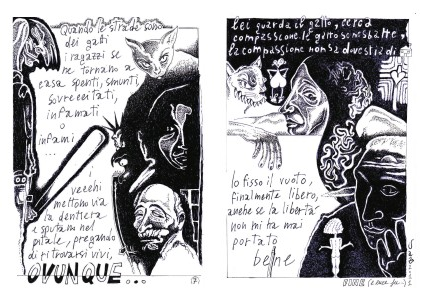 Quando le strade sono
dei gatti
i ragazzi se
ne tornano a
casa spenti, smunti,
sovreccitati,
infamati
o
infami
...
i
vecchi
mettono via
la dentiera
e sputano nel
pitale, pregando
di ritrovarsi vivi,
OVUNQUE...
lei guarda il gatto, cerca
compassione, il gatto se ne sbatte,
la compassione non sa dove stia di
Io fisso il vuoto,
finalmente libero,
anche se la libertà
non mi ha mai
portato
bene